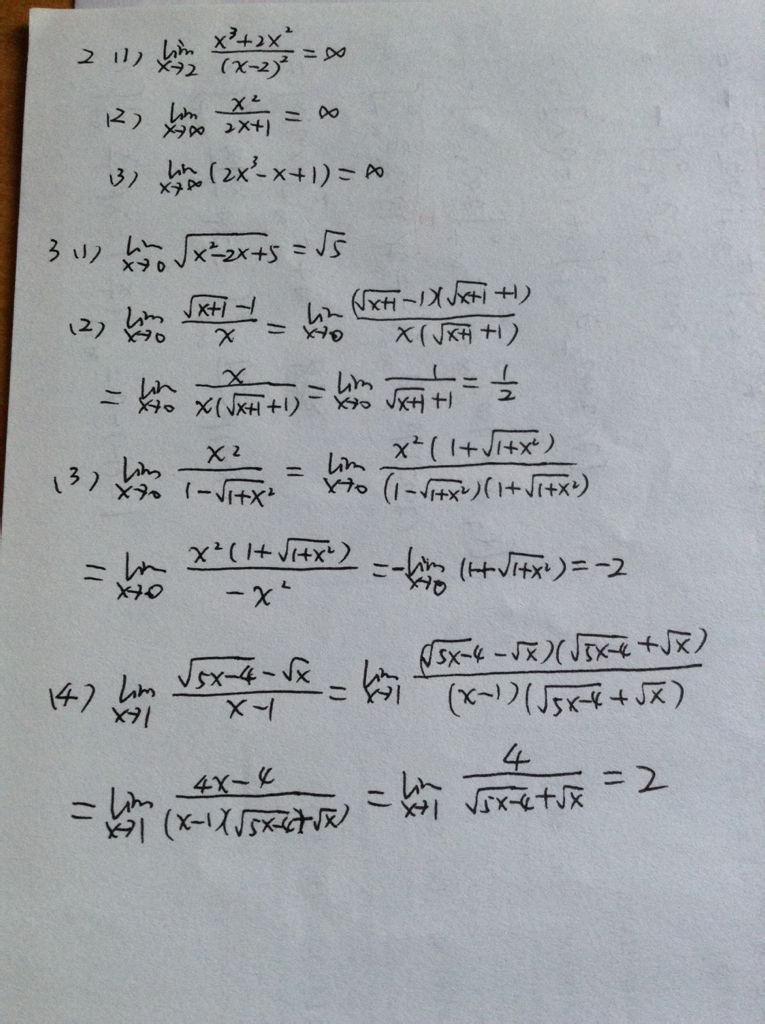 2 (1) lim x→2 (x³+2x²)/(x-2)² = ∞
(2) lim x→∞ x²/(2x+1) = ∞
(3) lim x→∞ (2x³-x+1) = ∞
3 (1) lim x→0 √(x²-2x+5) = √5
(2) lim x→0 (√(x+1) -1)/x = lim x→0 (√(x+1) -1)(√(x+1) +1)/(x(√(x+1) +1))
= lim x→0 x/(x(√(x+1) +1)) = lim x→0 1/(√(x+1) +1) = 1/2
(3) lim x→0 x²/(1-√(1+x²)) = lim x→0 x²(1+√(1+x²))/((1-√(1+x²))(1+√(1+x²)))
= lim x→0 x²(1+√(1+x²))/(-x²) = -lim x→0 (1+√(1+x²)) = -2
(4) lim x→1 (√(5x-4) -√x)/(x-1) = lim x→1 (√(5x-4) -√x)(√(5x-4) +√x)/((x-1)(√(5x-4) +√x))
= lim x→1 (4x-4)/((x-1)(√(5x-4) +√x)) = lim x→1 4/(√(5x-4) +√x) = 2